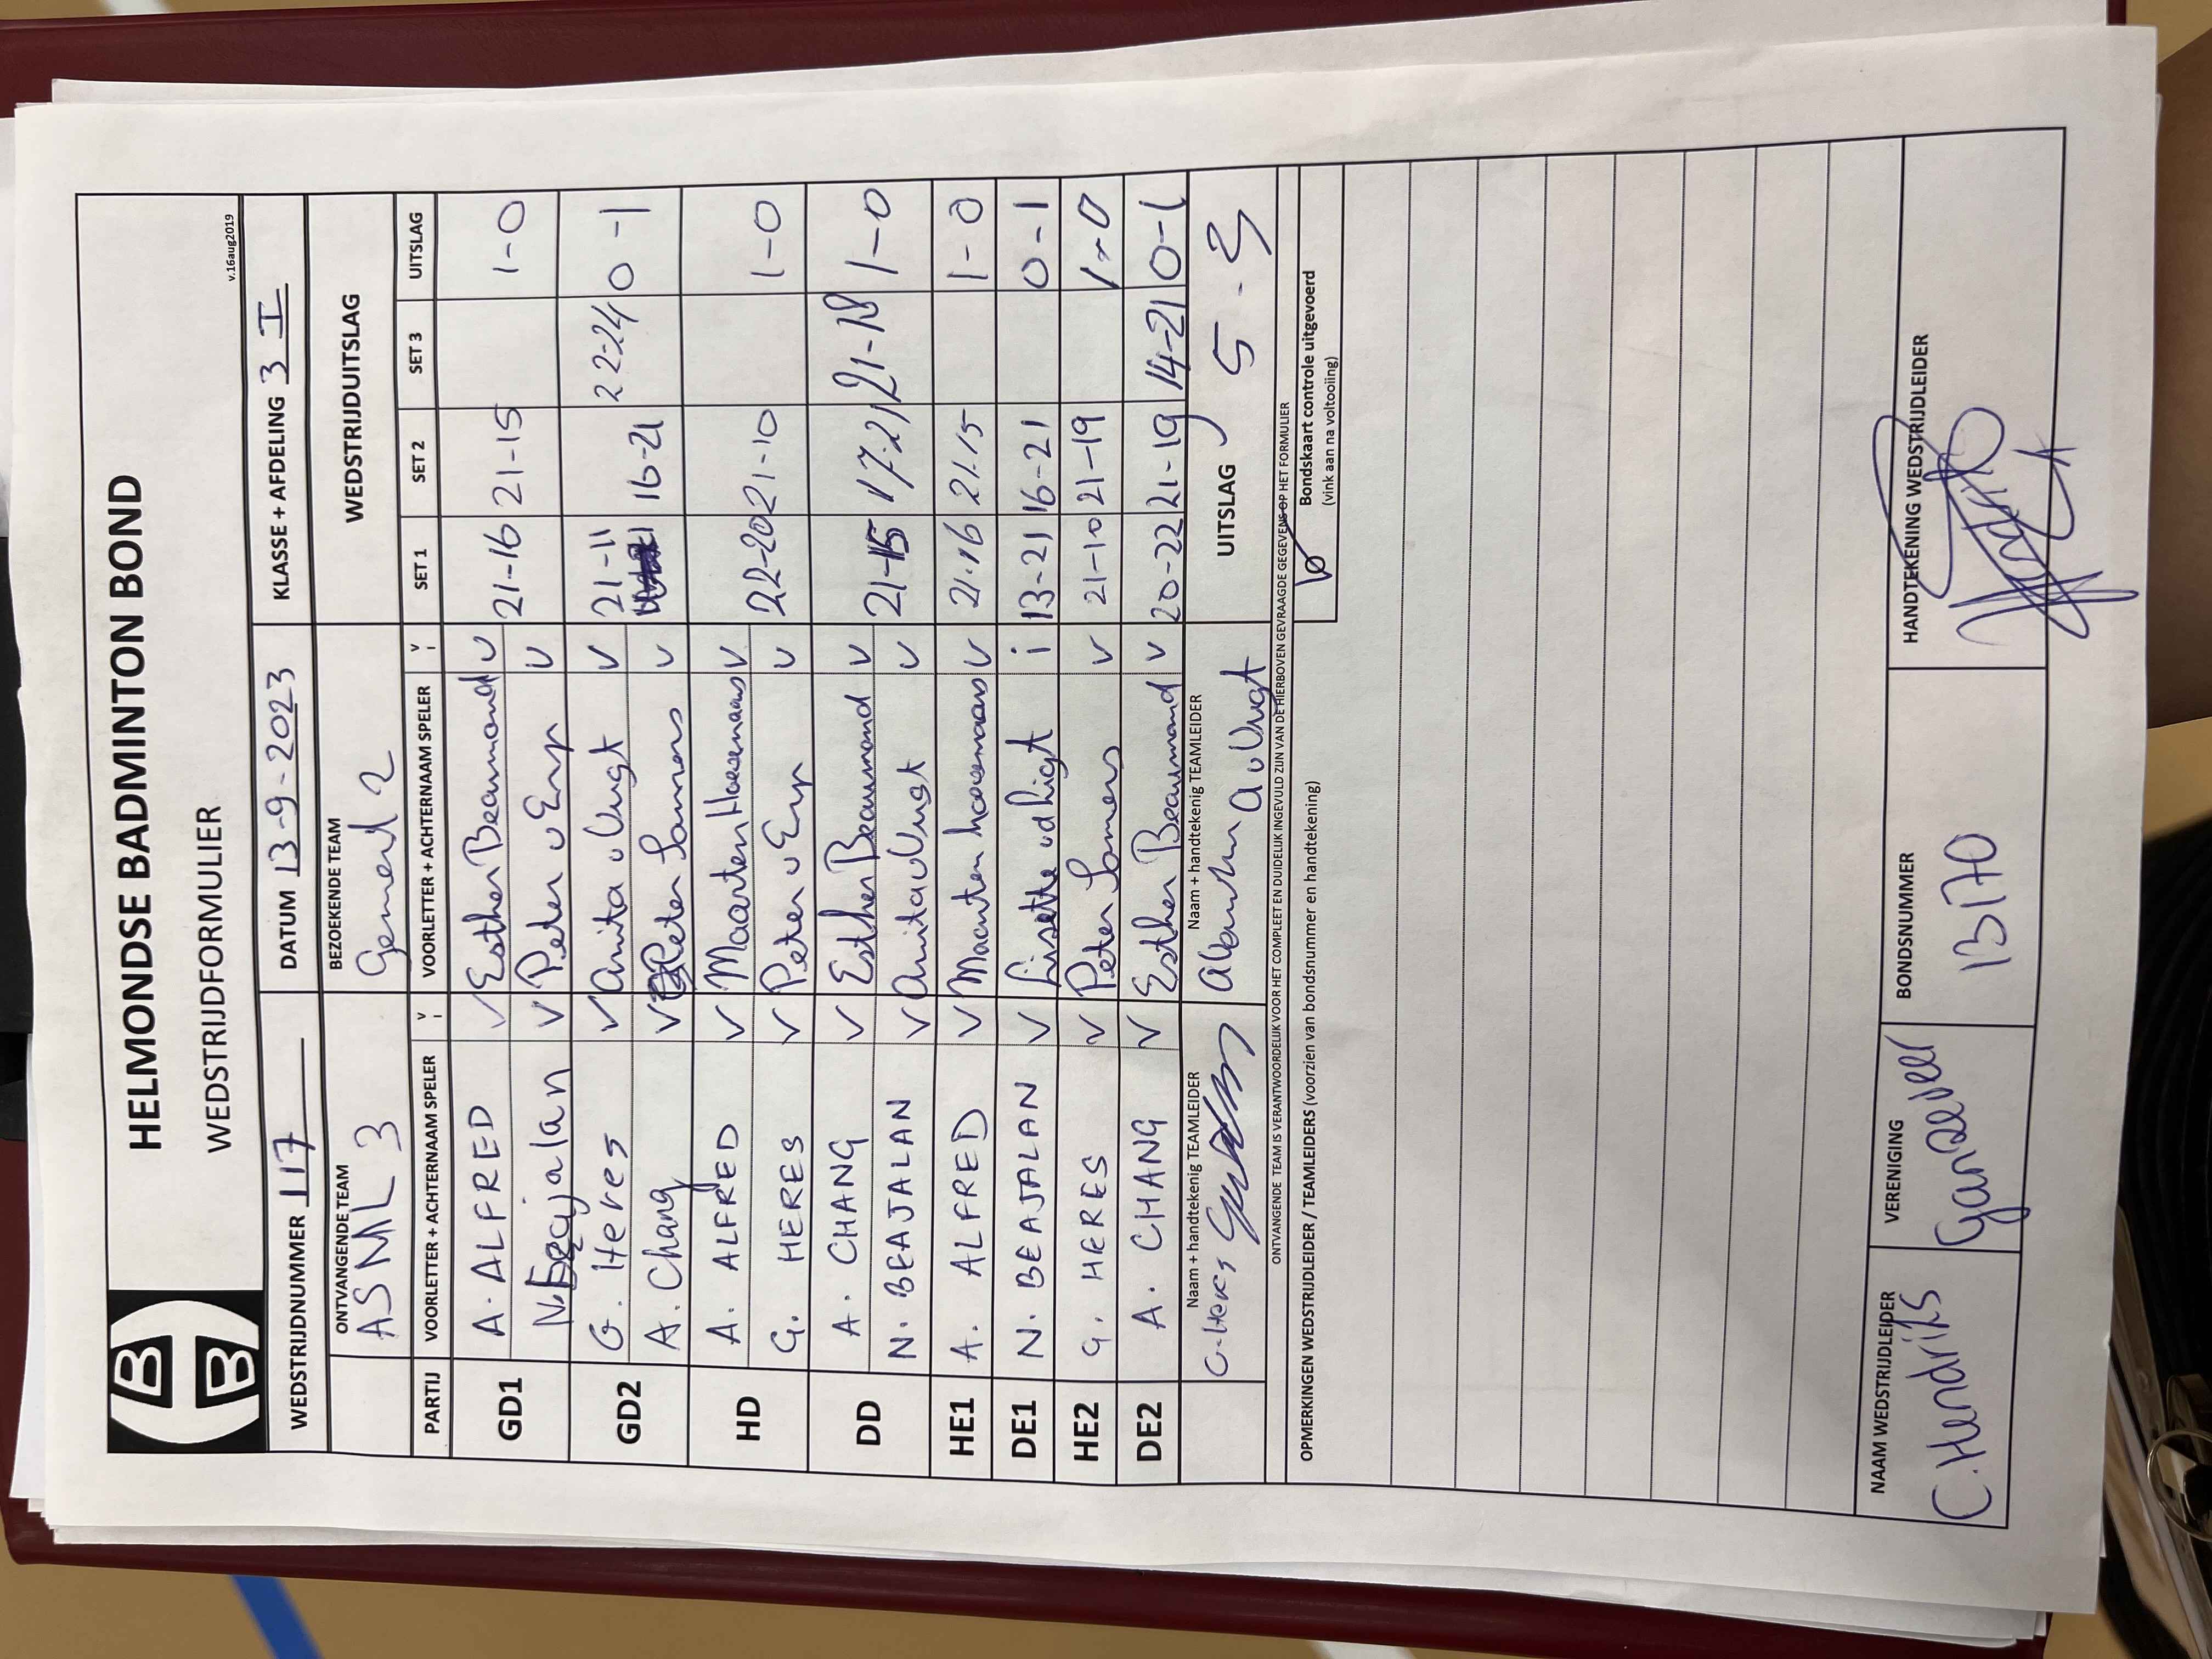 HELMONDSE BADMINTON BOND
WEDSTRIJDFORMULIER
v.16aug2019
WEDSTRIJDNUMMER 117 DATUM 13-9-2023 KLASSE + AFDELING 3 I
ONTVANGENDE TEAM BEZOEKENDE TEAM WEDSTRIJDUITSLAG
ASML 3 Gemert 2
PARTIJ VOORLETTER + ACHTERNAAM SPELER V i VOORLETTER + ACHTERNAAM SPELER V i SET 1 SET 2 SET 3 UITSLAG
GD1 A. ALFRED V Esther Beaumond V 21-16 21-15 1-0
N. Beajalan V Peter v Erp V
GD2 G. Heres V Anita v Vugt V 21-11 16-21 22-24 0-1
A. Chang V Peter Somers V
HD A. ALFRED V Maarten Hoezemans V 22-20 21-10 1-0
G. HERES V Peter v Erp V
DD A. CHANG V Esther Beaumond V 21-15 17-21 21-18 1-0
N. BEAJALAN V Anita v Vugt V
HE1 A. ALFRED V Maarten V 21-16 21-15 1-0
DE1 N. BEAJALAN V Lisette vd Ligt i 13-21 16-21 0-1
HE2 G. HERES V Peter Somers V 21-10 21-19 1-0
DE2 A. CHANG V Esther Beaumond V 20-22 21-19 14-21 0-1
Naam + handtekenig TEAMLEIDER Naam + handtekenig TEAMLEIDER UITSLAG 5-3
G. Heres A v Vugt
ONTVANGENDE TEAM IS VERANTWOORDELIJK VOOR HET COMPLEET EN DUIDELIJK INGEVULD ZIJN VAN DE HIERBOVEN GEVRAAGDE GEGEVENS OP HET FORMULIER
OPMERKINGEN WEDSTRIJDLEIDER / TEAMLEIDERS (voorzien van bondsnummer en handtekening) Bondskaart controle uitgevoerd
(vink aan na voltooiing)
NAAM WEDSTRIJDLEIDER VERENIGING BONDSNUMMER HANDTEKENING WEDSTRIJDLEIDER
C. Hendriks Ganzeveer 13170